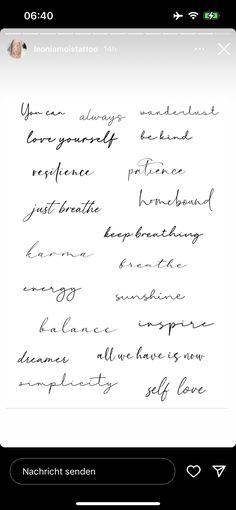 06:40
leoniemoistattoo 14h
You can always wanderlust
love yourself be kind
resilience patience
just breathe homebound
keep breathing
karma breathe
energy sunshine
balance inspire
dreamer all we have is now
simplicity self love
Nachricht senden